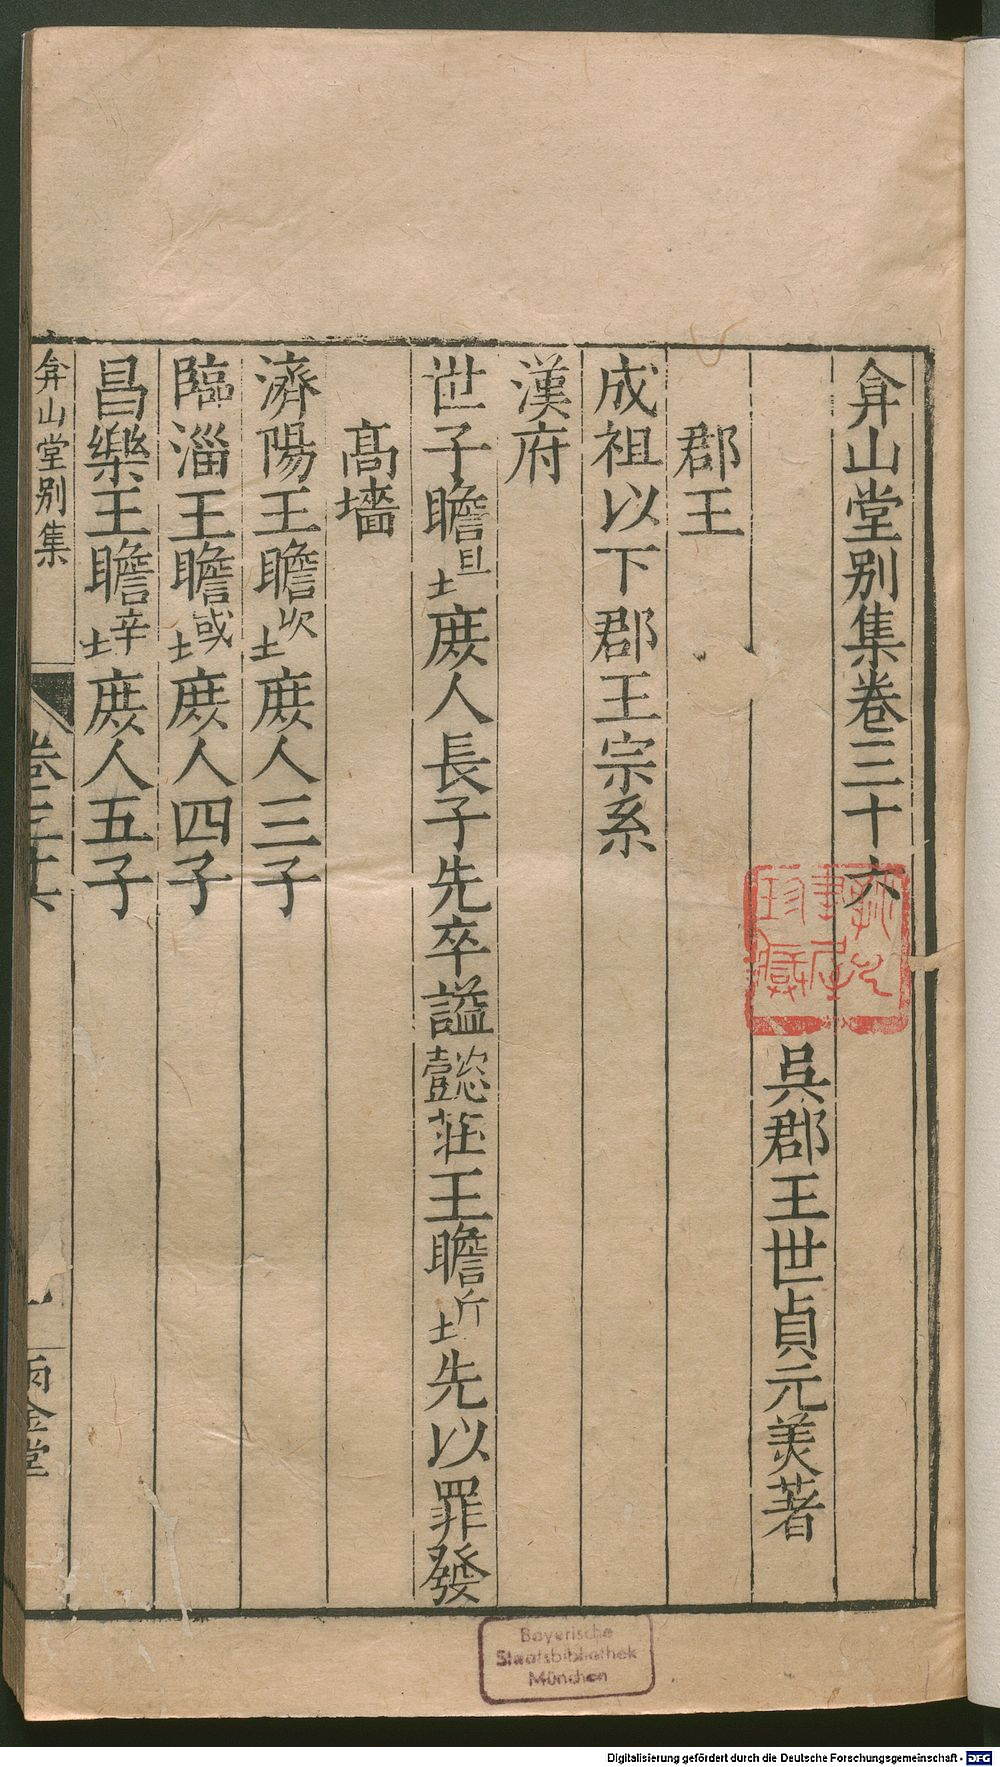 弇山堂别集卷三十六
吳郡王世貞元美著
郡王
成祖以下郡王宗系
漢府
世子瞻坦庶人長子先卒謚懿莊王瞻圻先以罪發
髙墻
濟陽王瞻垐庶人三子
臨淄王瞻域庶人四子
昌樂王瞻垶庶人五子
弇山堂别集
卷三十六
一
雨金堂
Bayerische
Staatsbibliothek
München
Digitalisierung gefördert durch die Deutsche Forschungsgemeinschaft - DFG